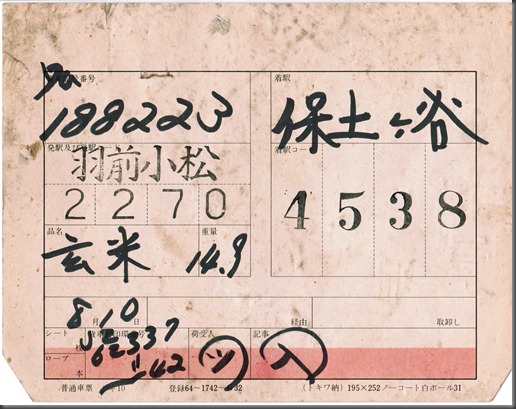 番号
188223
着駅
保土ヶ谷
発駅及び
羽前小松
2270
着駅コード
4538
品名
玄米
重量
14.9
8月10
経由
取卸し
シート
荷受人
記事
ロープ
本
62337
42
ツ
入
普通車票
登録64~1742~
32
(トキワ納) 195×252 ノーコート白ボール31